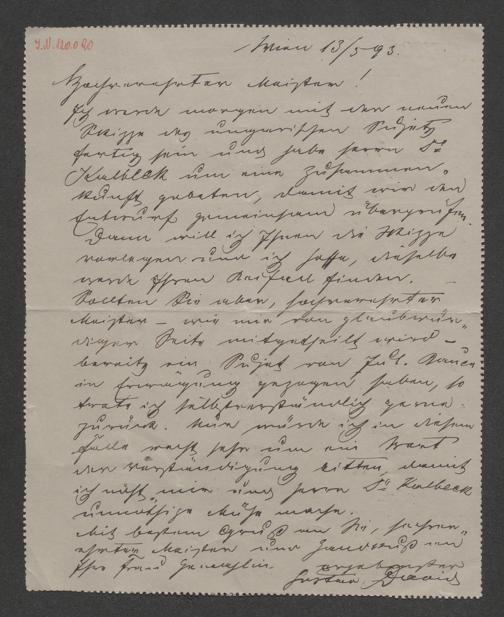 I.N. 120.020
Wien 13/5 93.
Hochverehrter Meister!
Ich werde morgen mit der neuen
Skizze des ungarischen Sujets
fertig sein und habe Herrn Dr
Kalbeck um eine Zusammen-
kunft gebeten, damit wir den
Entwurf gemeinsam überprüfen.
Dann will ich Ihnen die Skizze
vorlegen und ich hoffe, dieselbe
werde Ihren Beifall finden. —
Sollten Sie aber, hochverehrter
Meister – wie mir von glaubwür-
diger Seite mitgetheilt wird –
bereits ein Sujet von Jul. Bauer
in Erwägung gezogen haben, so
trete ich selbstverständlich gerne
zurück. Nur würde ich in diesem
Falle recht sehr um ein Wort
der Verständigung bitten, damit
ich nicht mir und Herrn Dr Kalbeck
unnöthige Mühe mache.
Mit bestem Gruß an Sie, hochver-
ehrter Meister und Handkuß an
Ihre Frau Gemahlin
ergebenster
Gustav Davis